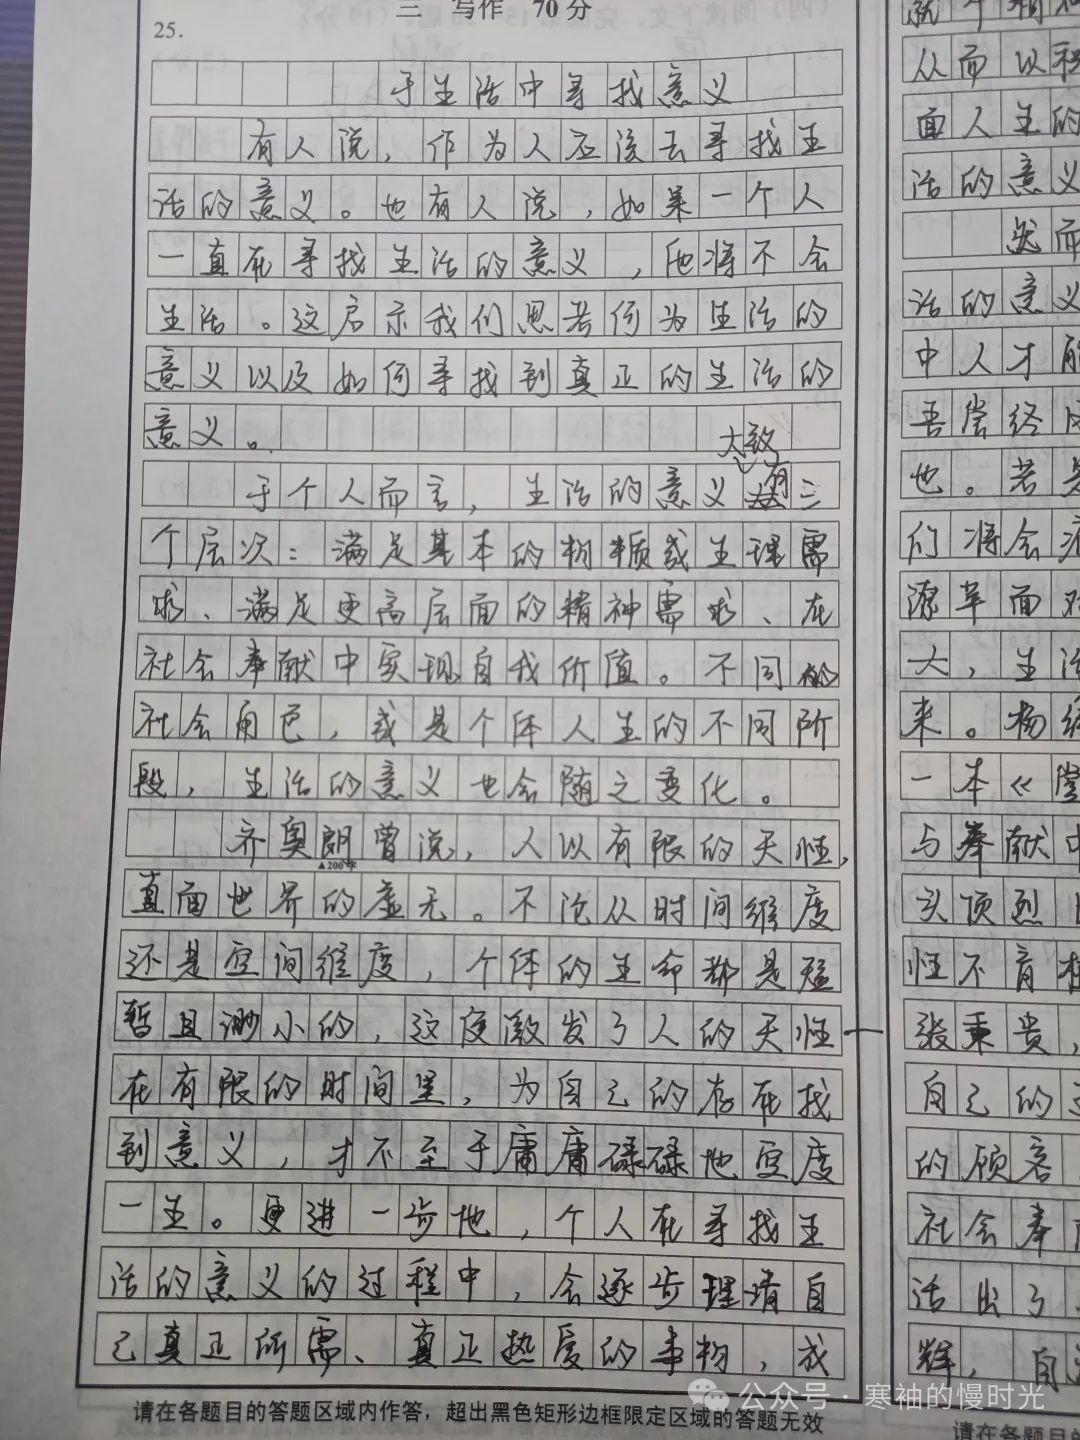 三 写作 70分
25.
于生活中寻找意义
有人说，作为人应该去寻找生
活的意义。也有人说，如果一个人
一直在寻找生活的意义，他将不会
生活。这启示我们思考何为生活的
意义以及如何寻找到真正的生活的
意义。
大致
于个人而言，生活的意义有三
个层次：满足基本的物质或生理需
求、满足更高层面的精神需求、在
社会奉献中实现自我价值。不同的
社会角色，或是个体人生的不同阶
段，生活的意义也会随之变化。
齐奥朗曾说，人以有限的天性，
▲200字
直面世界的虚无。不论从时间维度
还是空间维度，个体的生命都是短
暂且渺小的，这便激发了人的天性——
在有限的时间里，为自己的存在找
到意义，才不至于庸庸碌碌地空度
一生。更进一步地，个人在寻找生
活的意义的过程中，会逐步理清自
己真正所需、真正热爱的事物，成
请在各题目的答题区域内作答，超出黑色矩形边框限定区域的答题无效
从而以积
面人生的
活的意义
然而
活的意义
中人才能
吾尝终
也。若是
们将会
潦草面对
大，生活
来。杨绛
一本《堂
与奉献中
头顶烈日
性不育
张秉贵，
自己的
的顾客
社会奉献
活出了
辉，自
公众号·寒袖的慢时光
请在各题目的